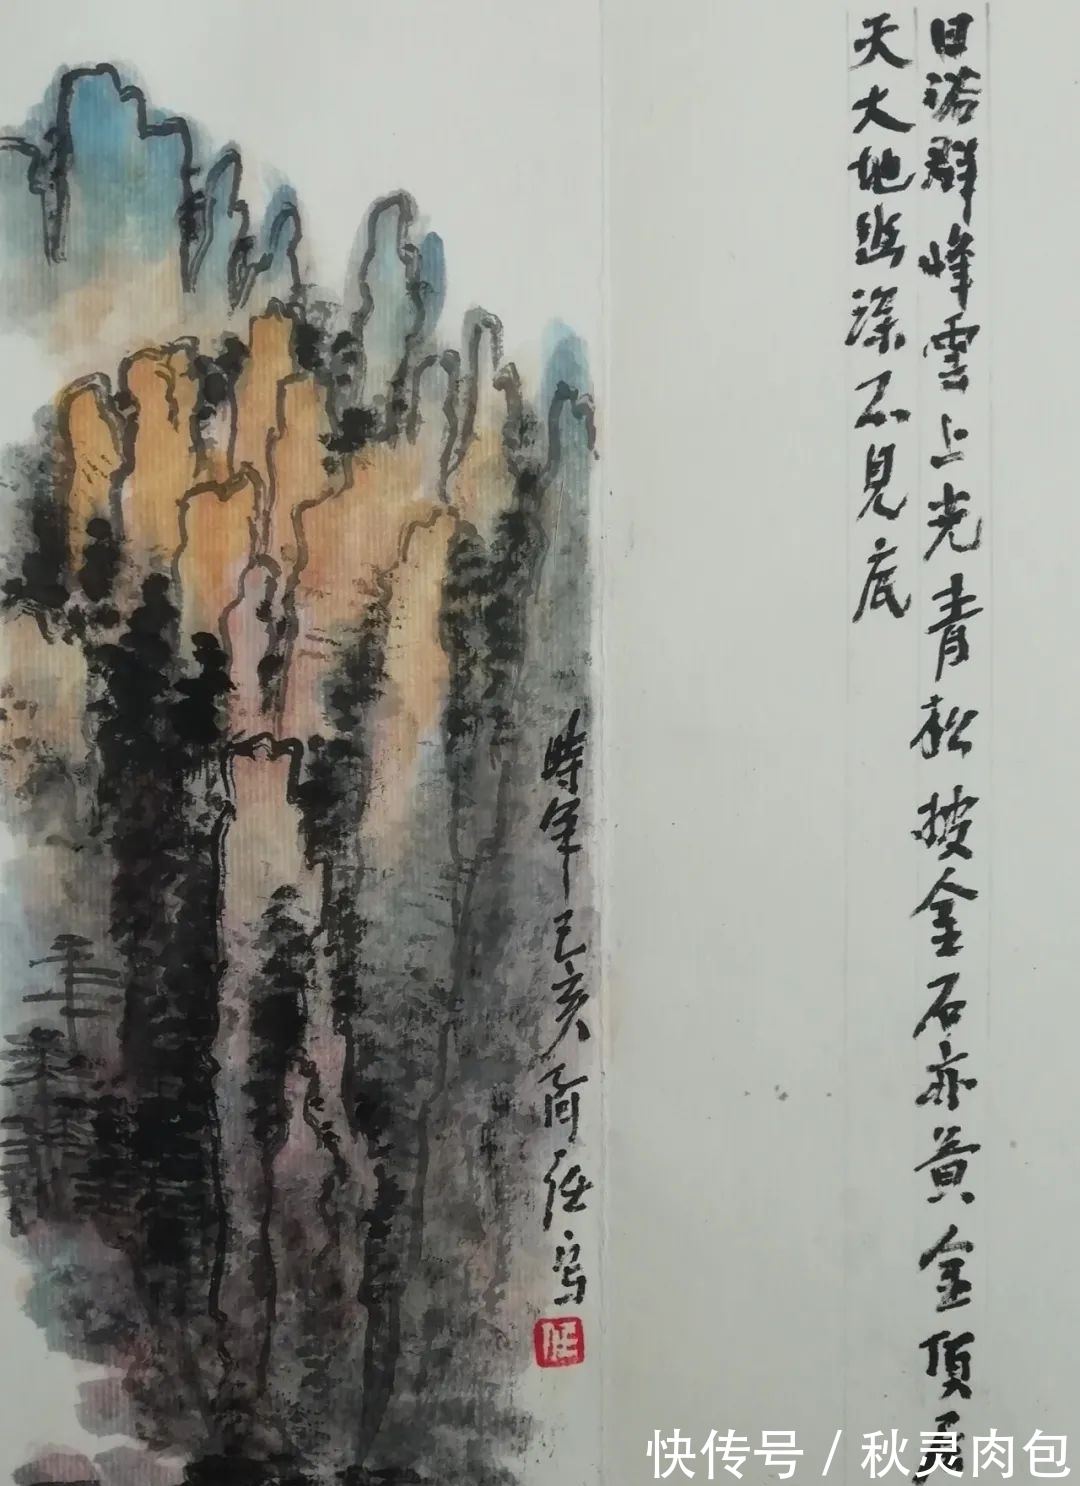 日浴群峰雲上光青松披金石亦黄金頂居
天大地幽深不見底
時年己亥 任写
任
快传号 / 秋灵肉包